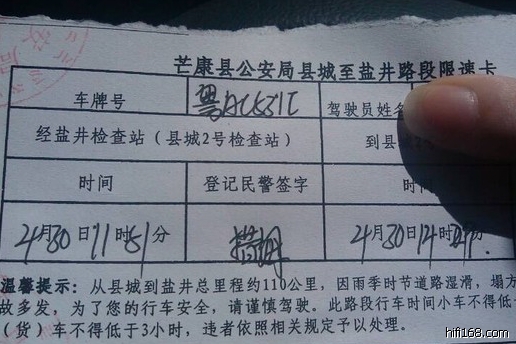 芒康县公安局县城至盐井路段限速卡
车牌号 驾驶员姓名
经盐井检查站（县城2号检查站） 到县
时间 登记民警签字 时
4月30日11时51分 4月30日14时 分
温馨提示：从县城到盐井总里程约110公里，因雨季时节道路湿滑，塌方
故多发，为了您的行车安全，请谨慎驾驶。此路段行车时间小车不得低
（货）车不得低于3小时，违者依照相关规定予以处理。
hifi168.com